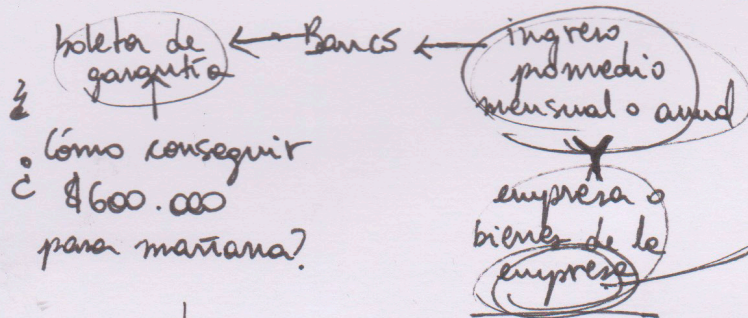 boleta de
garantía
Banco
ingreso
promedio
mensual o anual
¿Cómo conseguir
$600.000
para mañana?
empresa o
bienes de la
empresa